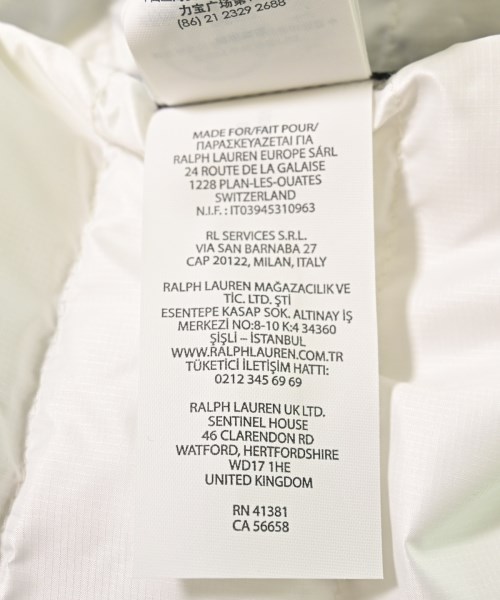 力宝广场第
(86) 21 2329 2688
MADE FOR/FAIT POUR/
ΠΑΡΑΣΚΕΥΑΖΕΤΑΙ ΓΙΑ
RALPH LAUREN EUROPE SÁRL
24 ROUTE DE LA GALAISE
1228 PLAN-LES-OUATES
SWITZERLAND
N.I.F. : IT03945310963
RL SERVICES S.R.L.
VIA SAN BARNABA 27
CAP 20122, MILAN, ITALY
RALPH LAUREN MAĞAZACILIK VE
TİC. LTD. ŞTİ
ESENTEPE KASAP SOK. ALTINAY İŞ
MERKEZİ NO:8-10 K:4 34360
ŞİŞLİ – İSTANBUL
WWW.RALPHLAUREN.COM.TR
TÜKETİCİ İLETİŞİM HATTI:
0212 345 69 69
RALPH LAUREN UK LTD.
SENTINEL HOUSE
46 CLARENDON RD
WATFORD, HERTFORDSHIRE
WD17 1HE
UNITED KINGDOM
RN 41381
CA 56658